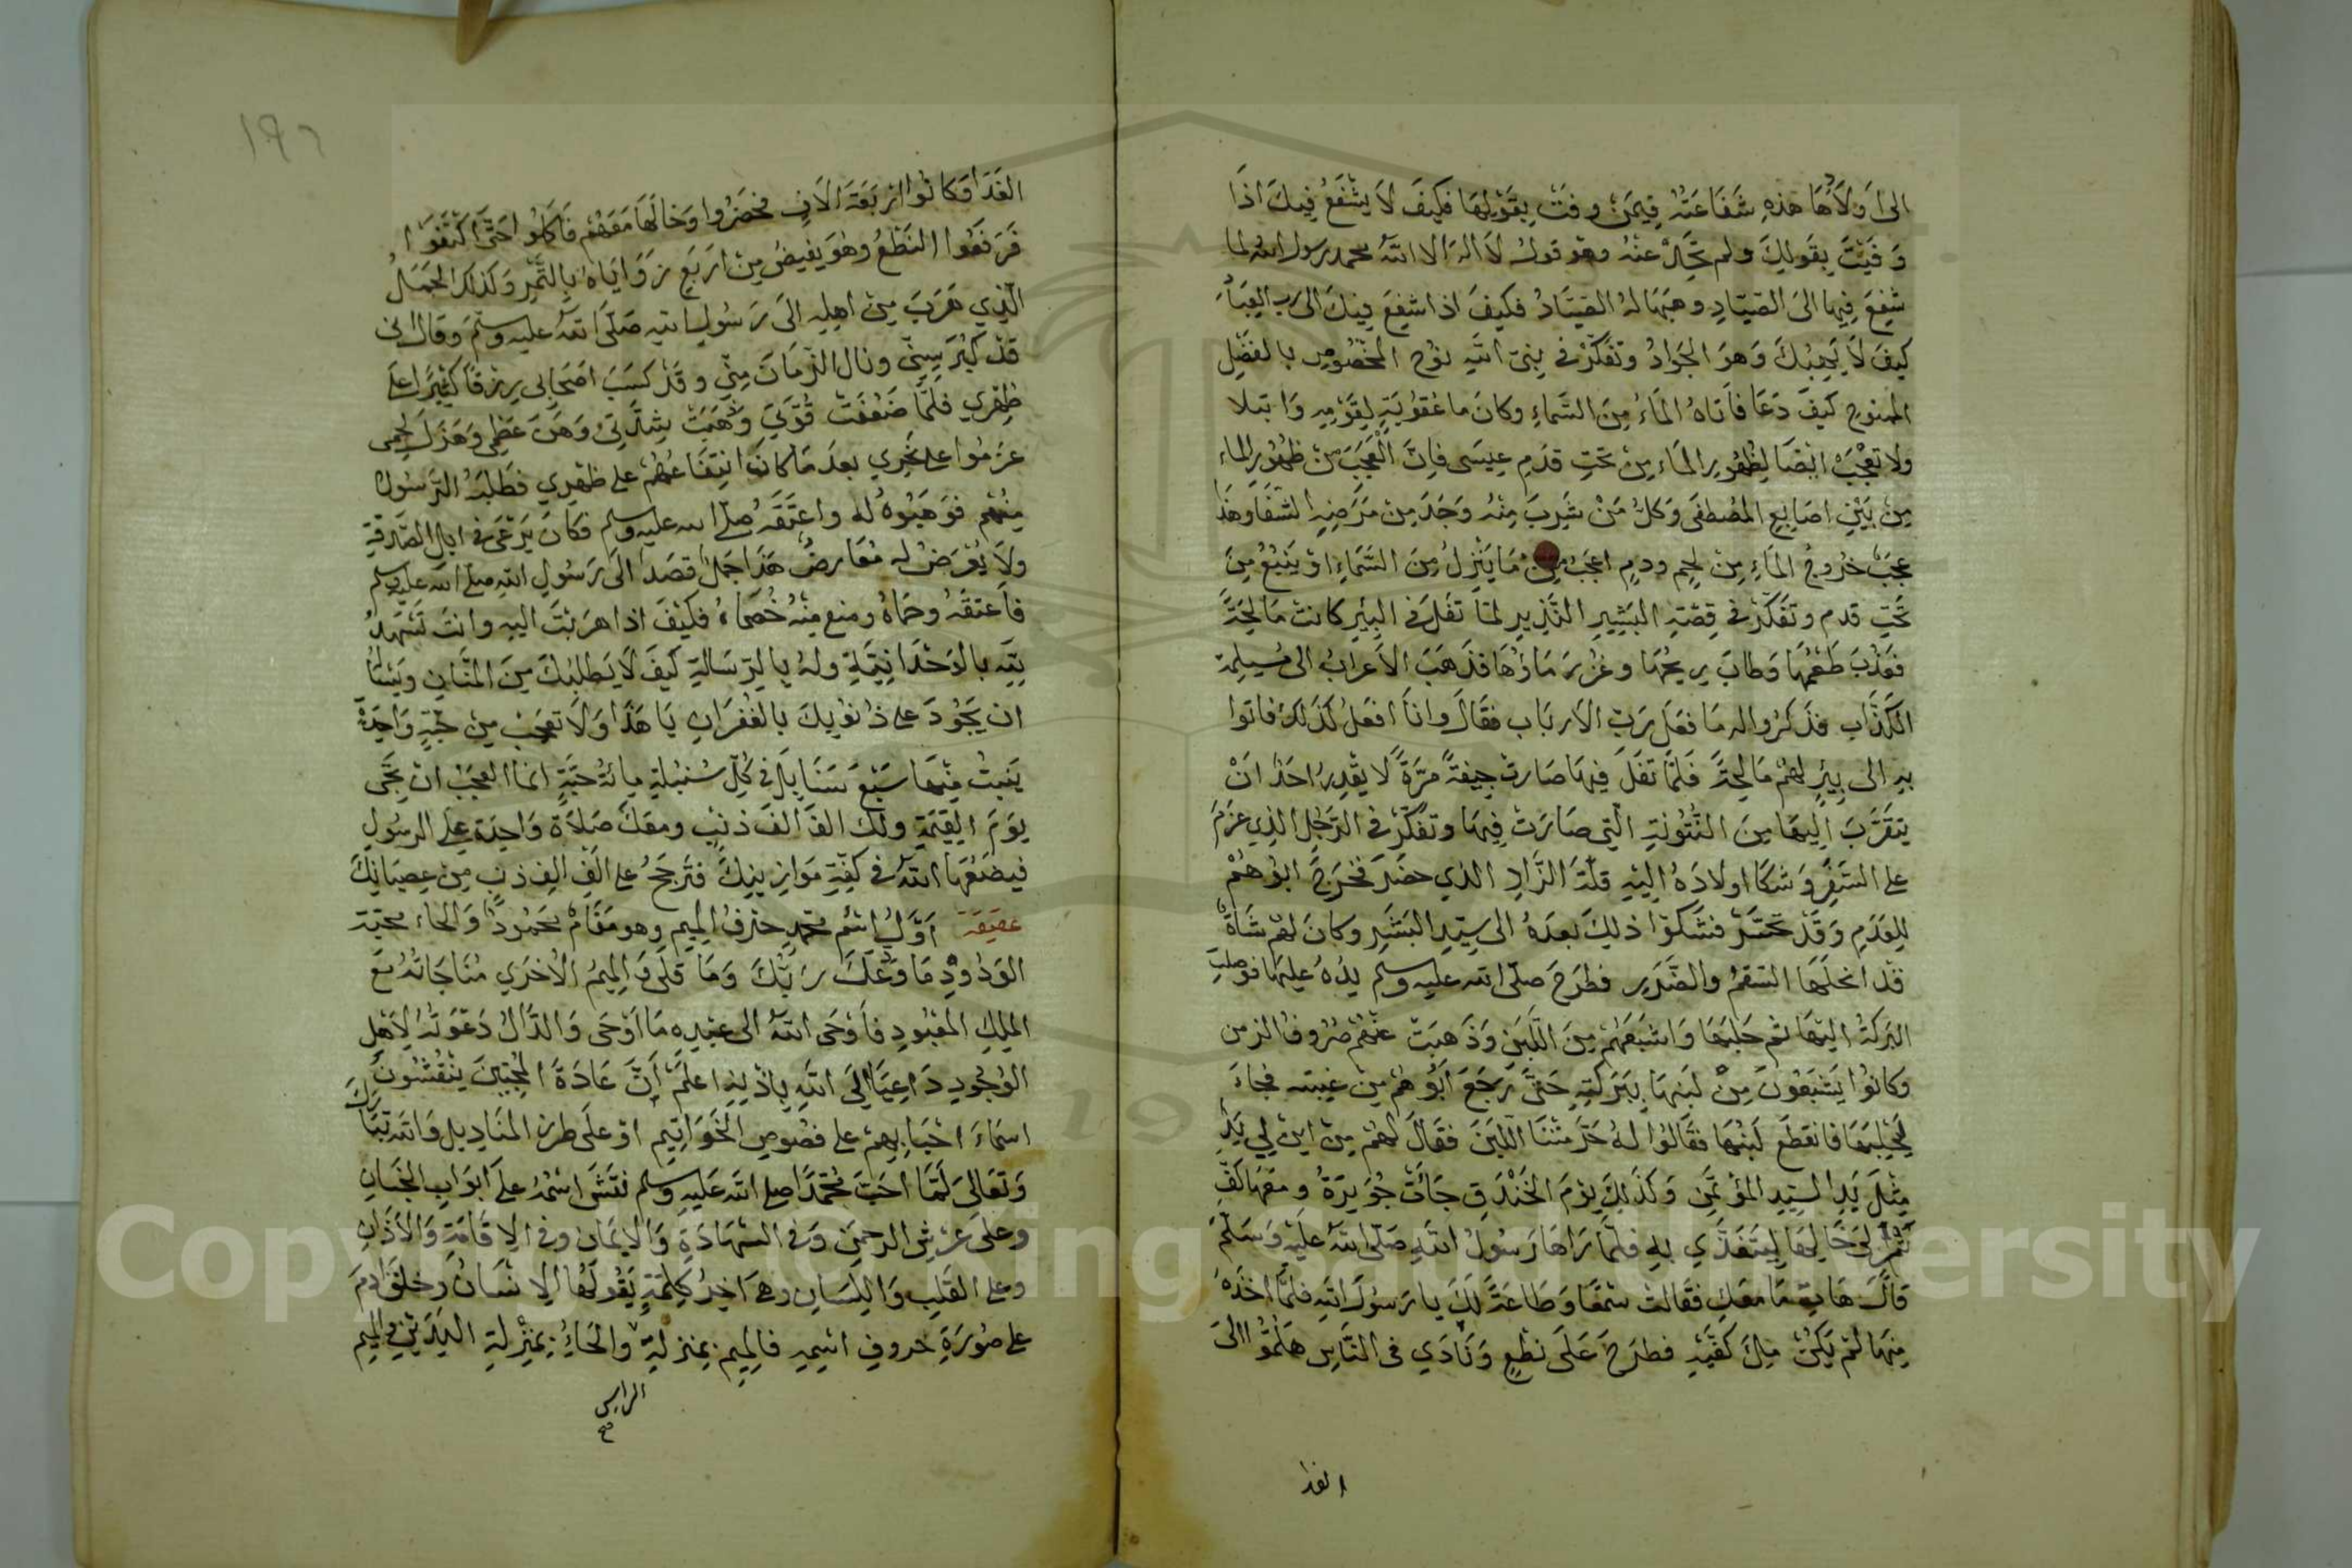 الى اولادها هذه شفاعته فيمن وفت بقولها فكيف لا يشفع فيك اذا
وفيت بقولك ولم تحل عنه وهو قول لا اله الا الله محمد رسول الله لما
شفع فيها الى الصياد وهبها له الصياد فكيف اذا شفع فيك الى رب العباد
كيف لا يهبك وهو الجواد وتفكر في نبي الله نوح المخصوص بالفضل
الممنوح كيف دعا فاتاه الماء من السماء وكان ما عقوبة لقومه وابتلا
ولا تعجب ايضا لظهور الماء من تحت قدم عيسى فان العجب من ظهور الماء
من بين اصابع المصطفى وكل من شرب منه وجد من مرضه الشفا وهذا
عجب خروج الماء من لحم ودم اعجب من ما ينزل من السماء او ينبع من
تحت قدم وتفكر في قصة البشير النذير لما تفل في البئر كانت مالحة
فعذب طعمها وطاب ريحها وغزر ماؤها فذهب الاعراب الى مسيلمة
الكذاب فذكروا له ما فعل رب الارباب فقال وانا افعل كذلك فاتوا
به الى بير لهم مالحة فلما تفل فيها صارت جيفة مرة لا يقدر احد ان
يتقرب اليها من النتونة التي صارت فيها وتفكر في الرجل الذي عزم
على السفر وشكا اولاده اليه قلة الزاد الذي حضر فخرج ابوهم
للعدم وقد تحسر فشكوا ذلك بعده الى سيد البشر وكان لهم شاة
قد انحلها السقم والضرر فطرح صلى الله عليه وسلم يده عليها فوصلت
البركة اليها ثم حلبها واشبعهم من اللبن وذهبت عنهم صروف الزمن
وكانوا يشبعون من لبنها ببركته حتى رجع ابوهم من غيبته فجاء
ليحلبها فانقطع لبنها فقالوا له حرمتنا اللبن فقال لهم من اين لي يد
مثل يد السيد المؤتمن وكذلك يوم الخندق جاءت جويرة ومعها كف
تمر الى خالها ليتغدي به فلما راها رسول الله صلى الله عليه وسلم
قال هات ما معك فقالت سمعا وطاعة لك يا رسول الله فلما اخذه
منها لم يكن ملء كفيه فطرح على نطع ونادي في الناس هلموا الى
الغدا
١٩٦
الغدا وكانوا اربعة الاف فحضروا وخالها معهم فاكلوا حتى اكتفوا
فرفعوا النطع وهو يفيض من اربع زواياه بالتمر وكذلك الجمل
الذي هرب من اهله الى رسول الله صلى الله عليه وسلم وقال اني
قد كبر سني ونال الزمان مني وقد كسب اصحابي رزقا كثيرا على
ظهري فلما ضعفت قوتي وهبت شدتي وهن عظمي وهزل لحمي
عزموا على نحري بعد ما كان انتفاعهم على ظهري فطلبه الرسول
منهم فوهبوه له واعتقه صلى الله عليه وسلم فكان يرعى في ابل الصدقة
ولا يعرض له معارض هذا جمل قصد الى رسول الله صلى الله عليه وسلم
فاعتقه وحماه ومنع منه خصماه فكيف اذا هربت اليه وانت تشهد
لله بالوحدانية وله بالرسالة كيف لا يطلبك من المنان ويسأله
ان يجود على ذنوبك بالغفران يا هذا ولا تعجب من حبة واحدة
ينبت منها سبع سنابل في كل سنبلة مائة حبة انما العجب ان تجى
يوم القيمة ولك الف الف ذنب ومعك صلاة واحدة على الرسول
فيضعها الله في كفة موازينك فترجح على الف الف ذنب من عصيانك
عقيقة اول اسم محمد حرف الميم وهو مقام محمود والحاء محبة
الودود ما ودعك ربك وما قلى والميم الاخري مناجاته مع
الملك المعبود فاوحى الله الى عبده ما اوحى والدال دعوته لاهل
الوجود داعيا الى الله باذنه اعلم ان عادة المحبين ينقشون
اسماء احبابهم على فصوص الخواتيم او على طرز المناديل والله تبارك
وتعالى لما احب محمدا صلى الله عليه وسلم نقش اسمه على ابواب الجنان
وعلى عرش الرحمن وفي الشهادة والايمان وفي الاقامة والاذان
وعلى القلب واللسان وهي اخر كلمة يقولها الانسان وخلق ادم
على صورة حروف اسمه فالميم بمنزلة والحاء بمنزلة اليدين والميم
الراس
صح
Copyright © King Saud University